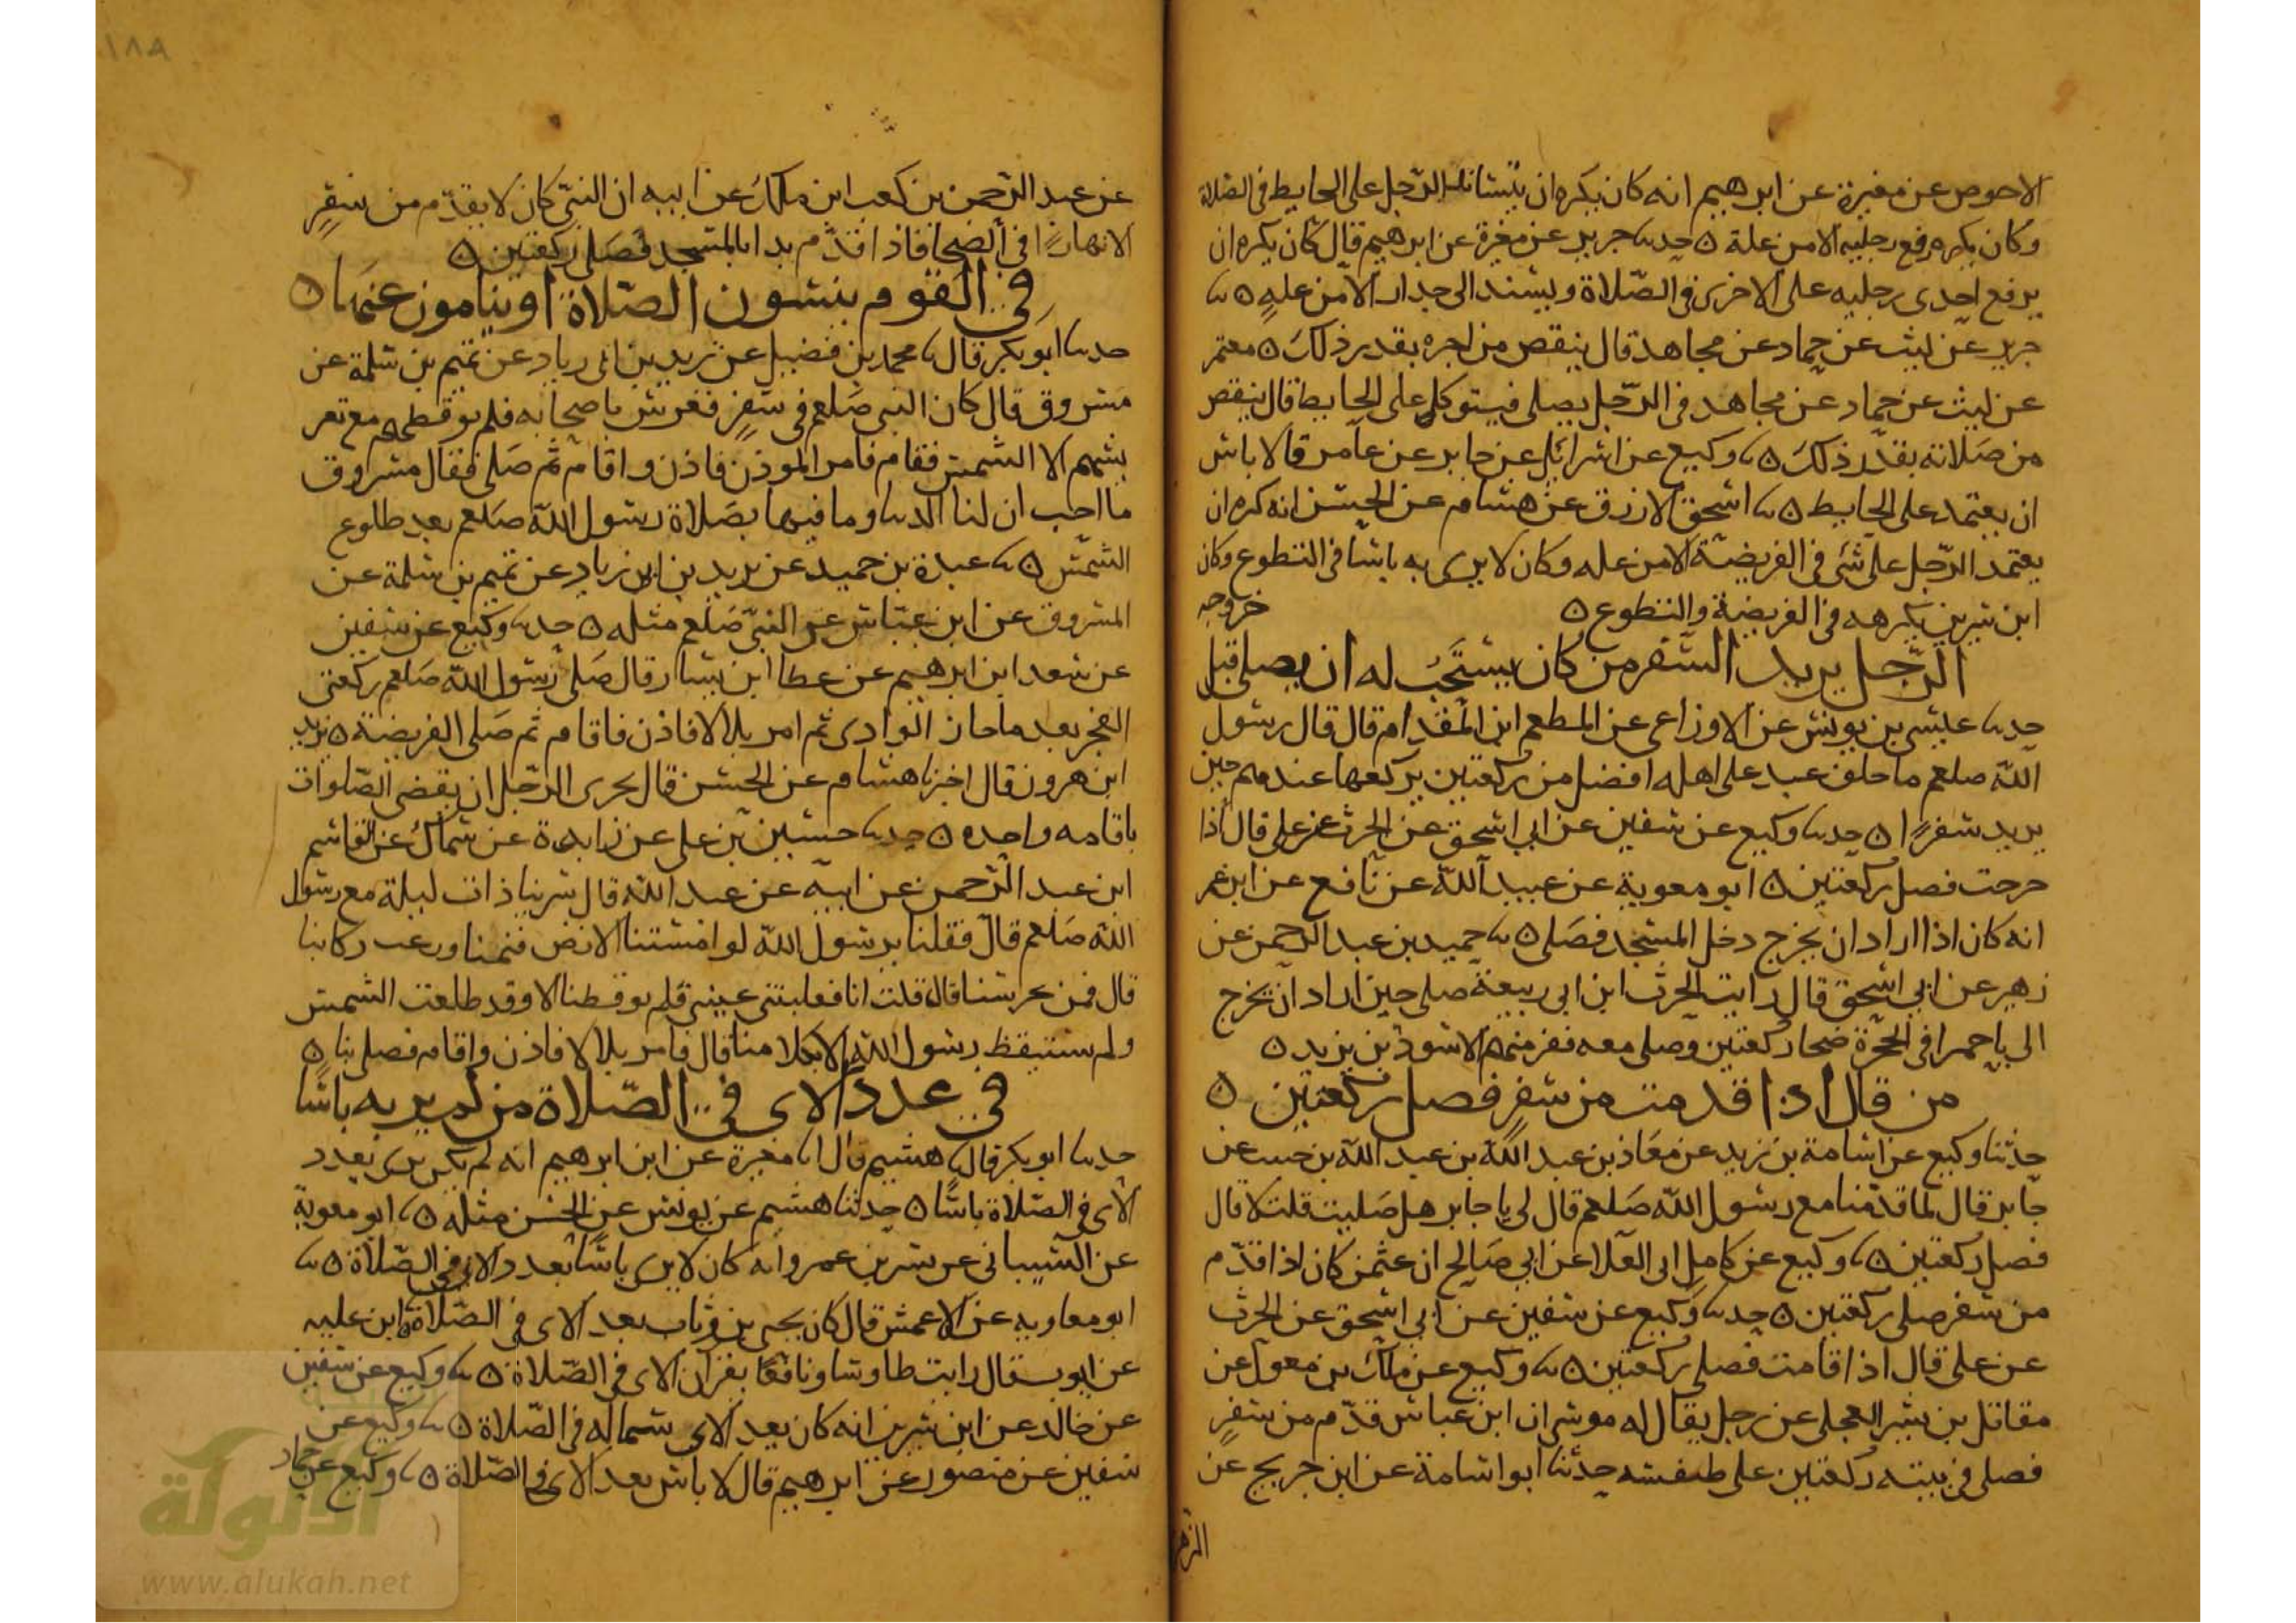 الاحوص عن مغيرة عن ابرهيم انه كان يكره ان يتساند الرجل على الحايط في الصلاة
وكان يكره رفع رجليه الا من علة ٥ حدثنا جرير عن مغيرة عن ابرهيم قال كان يكره ان
يرفع احدى رجليه على الاخرى في الصلاة ويسند الى جدار الا من علة ٥ ثنا
جرير عن ليث عن حماد عن مجاهد قال ينقص من اجره بقدر ذلك ٥ معتمر
عن ليث عن حماد عن مجاهد في الرجل يصلي فيتوكل على الحايط قال ينقص
من صلاته بقدر ذلك ٥ ثنا وكيع عن اسرائيل عن جابر عن عامر قال لا باس
ان يعتمد على الحايط ٥ ثنا اسحق الازرق عن هشام عن الحسن انه كره ان
يعتمد الرجل على شيء في الفريضة الا من عله وكان لا يرى به باسا في التطوع وكان
ابن سيرين يكرهه في الفريضة والتطوع ٥ خروجه
الرجل يريد السفر من كان يستحب له ان يصلي قبل
حدثنا عيسى بن يونس عن الاوزاعي عن المطعم ابن المقدام قال قال رسول
الله صلعم ما خلف عبد على اهله افضل من ركعتين يركعهما عندهم حين
يريد سفرا ٥ حدثنا وكيع عن سفين عن ابي اسحق عن الحرث عن علي قال اذا
خرجت فصل ركعتين ٥ ابو معوية عن عبيد الله عن نافع عن ابن عمر
انه كان اذا اراد ان يخرج دخل المسجد فصلى ٥ ثنا حميد بن عبد الرحمن عن
زهير عن ابي اسحق قال رايت الحرث ابن ابي ربيعة صلى حين اراد ان يخرج
الى باحمرا في الحجرة ضحا ركعتين وصلى معه نفر منهم الاسود بن يزيد ٥
من قال اذا قدمت من سفر فصل ركعتين ٥
حدثنا وكيع عن اسامة بن زيد عن معاذ بن عبد الله بن عبد الله بن حبيب عن
جابر قال لما قدمنا مع رسول الله صلعم قال لي يا جابر هل صليت قلت لا قال
فصل ركعتين ٥ ثنا وكيع عن كامل ابي العلا عن ابي صالح ان عثمن كان اذا قدم
من سفر صلى ركعتين ٥ حدثنا وكيع عن سفين عن ابي اسحق عن الحرث
عن علي قال اذا قامت فصلي ركعتين ٥ ثنا وكيع عن ملك بن معول عن
مقاتل بن بشير العجلي عن رجل يقال له موسى ان ابن عباس قدم من سفر
فصلى في بيته ركعتين على طنفسه حدثنا ابو اسامة عن ابن جريج عن
الزهر
١٨٩
عن عبد الرحمن بن كعب ابن ملك عن ابيه ان النبي كان لا يقدم من سفر
الا نهارا في الضحا فاذا قدم بدا بالمسجد فصلى ركعتين ٥
في القوم ينسون الصلاة او ينامون عنها ٥
حدثنا ابو بكر قال ثنا محمد بن فضيل عن يزيد بن ابي زياد عن تميم بن سلمة عن
مسروق قال كان النبي صلعم في سفر فعرس باصحابه فلم يوقظهم مع تعر
يسهم الا الشمس فقام فامر الموذن فاذن واقام ثم صلى فقال مسروق
ما احب ان لنا الدنيا وما فيها بصلاة رسول الله صلعم بعد طلوع
الشمس ٥ ثنا عبدة بن حميد عن يزيد بن ابي زياد عن تميم بن سلمة عن
المسروق عن ابن عباس عن النبي صلعم مثله ٥ حدثنا وكيع عن سفين
عن سعد ابن ابرهيم عن عطا ابن يسار قال صلى رسول الله صلعم ركعتي
الفجر بعد ما جاز الوادي ثم امر بلالا فاذن فاقام ثم صلى الفريضة ٥ يزيد
ابن هرون قال اخبرنا هشام عن الحسن قال يجزى الرجل ان يقضي الصلوات
باقامه واحده ٥ حدثنا حسين بن علي عن زايدة عن سماك عن القاسم
ابن عبد الرحمن عن ابيه عن عبد الله قال سرينا ذات ليلة مع رسول
الله صلعم قال فقلنا يرسول الله لو امسستنا الارض فنمنا ورعت ركابنا
قال فمن يحرسنا قال قلت انا فغلبتني عيني فلم يوقظنا الا وقد طلعت الشمس
ولم يستيقظ رسول الله الا بكلامنا قال فامر بلالا فاذن واقام فصلى بنا ٥
في عدد الاي في الصلاة من لم ير به باسا
حدثنا ابو بكر قال ثنا هشيم قال انا مغيرة عن ابن ابرهيم انه لم يكن يرى بعدد
الاي في الصلاة باسا ٥ حدثنا هشيم عن يونس عن الحسن مثله ٥ ثنا ابو معوية
عن الشيباني عن بسر بن عمرو انه كان لا يرى باسا بعدد الاي في الصلاة ٥ ثنا
ابو معاويه عن الاعمش قال كان يحيى بن وثاب يعد الاي في الصلاة ٥ ابن عليه
عن ايوب قال رايت طاوسا ونافعا يفزان الاي في الصلاة ٥ ثنا وكيع عن سفين
عن خالد عن ابن سيرين انه كان يعد الاي بشماله في الصلاة ٥ ثنا وكيع عن
سفين عن منصور عن ابرهيم قال لا باس بعد الاي في الصلاة ٥ ثنا وكيع عن حماد
الألوكة
www.alukah.net